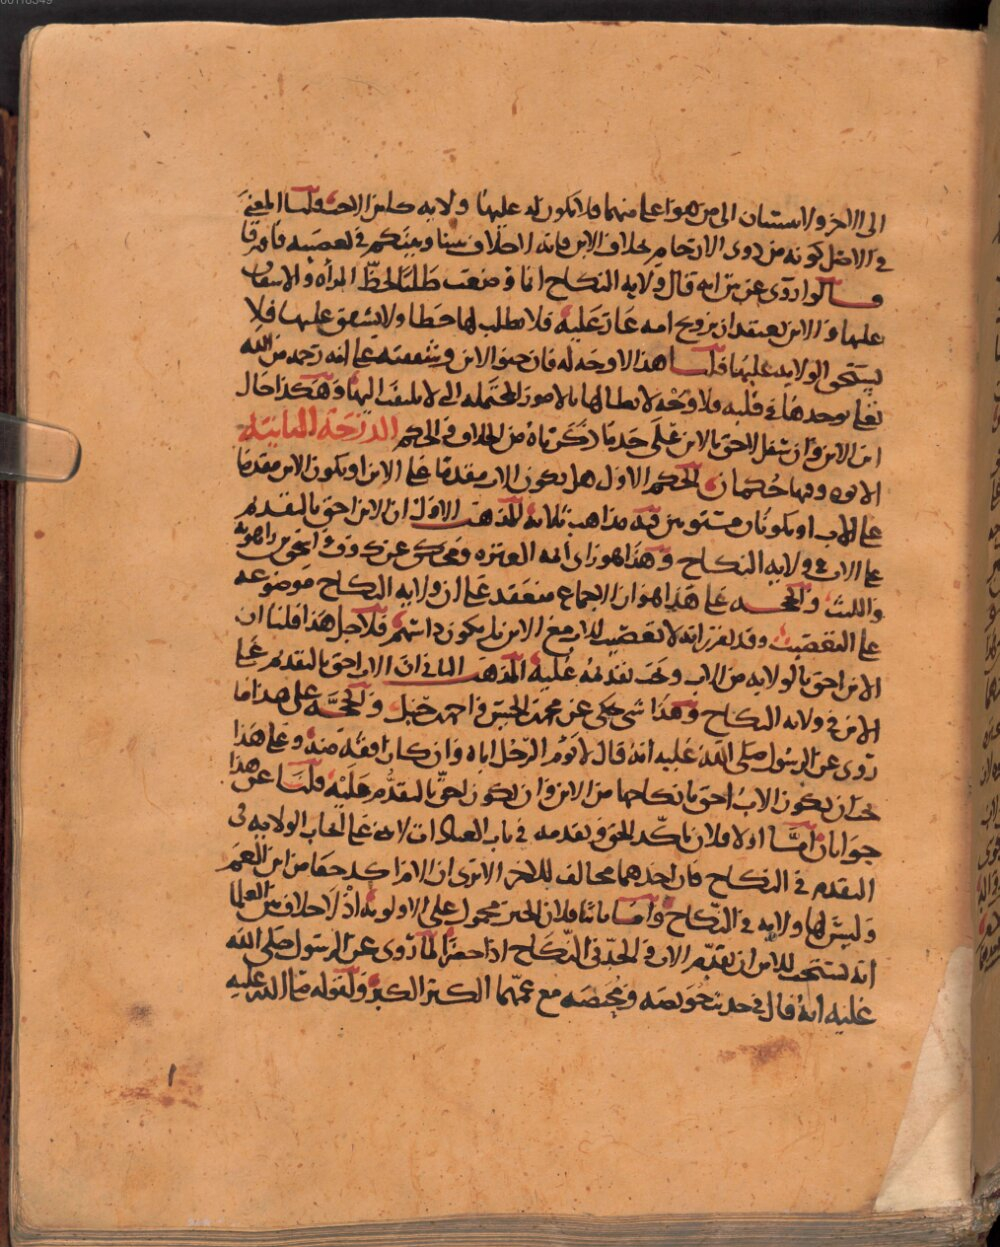 00118349
الى الاخر والاستنان الى من هو اعلى منهما فلا تكون له عليها ولاية كابن الاخت قلنا المعنى
في الاصل كونه من ذوي الارحام بخلاف الابن فانه لا خلاف بيننا وبينكم في تعصيبه فافترقا
قالوا روي عن انه قال ولاية النكاح انما وضعت طلبا لحظ المرأة والاشفاق
عليها والابن يعتقد ان تزويج امه عار عليه فلا يطلب لها حظا ولا يشفق عليها فلا
يستحق الولاية عليها قلنا هذا لا وجه له فان حنو الابن وشفقته على امه رحمة من الله
تعالى يوجدها في قلبه فلا وجه لابطالها بالامور المحتملة التي لا يلتفت اليها وهكذا حال
ابن الابن وان سفل لاحق بالابن على حد ما ذكرناه من الخلاف في الحكم الدرجة الثانية
الابوة وفيها حكمان الحكم الاول هل يكون الاب مقدما على الابن او يكون الابن مقدما
على الاب او يكونان مستويين فيه مذاهب ثلاثة المذهب الاول ان الابن احق بالتقدم
على الاب في ولاية النكاح وهذا هو راي ائمة العترة ومحكي عن اسحق بن راهويه
والليث والحجة على هذا هو ان الاجماع منعقد على ان ولاية النكاح موضوعة
على التعصيب وقد تقرر انه لا تعصيب للاب مع الابن بل يكون ذا سهم فلاجل هذا قلنا ان
الابن احق بالولاية من الاب ويجب تقديمه عليه المذهب الثاني ان الاب احق بالتقدم على
الابن في ولاية النكاح وهذا شي حكي عن محمد بن الحسن واحمد بن حنبل والحجة على هذا ما
روي عن الرسول صلى الله عليه انه قال لا يؤم الرجل اباه وان كان افقه منه وعلى هذا
يجب ان يكون الاب احق بانكاحها من الابن وان يكون احق بالتقدم عليه قلنا عن هذا
جوابان اما اولا فلان تاكد الحق وتقدمه في باب العبادات لا يدل على ايجاب الولاية في
التقدم في النكاح فان احدهما مخالف للاخر الا ترى ان الام اكد حقا من ابن العم
وليس لها ولاية في النكاح واما ثانيا فلان الخبر محمول على الاولوية اذ لا خلاف بين العلما
انه يستحب للابن ان يقدم الاب في الحد في النكاح اذا حضرا لما روي عن الرسول صلى الله
عليه انه قال في حديث حويصه ومحيصه مع عمهما الكبر الكبر ولقوله صلى الله عليه